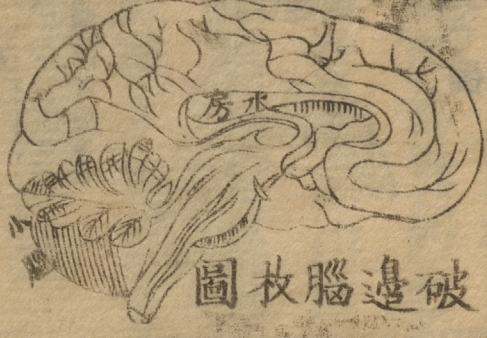 水房
小
破邊腦枚圖